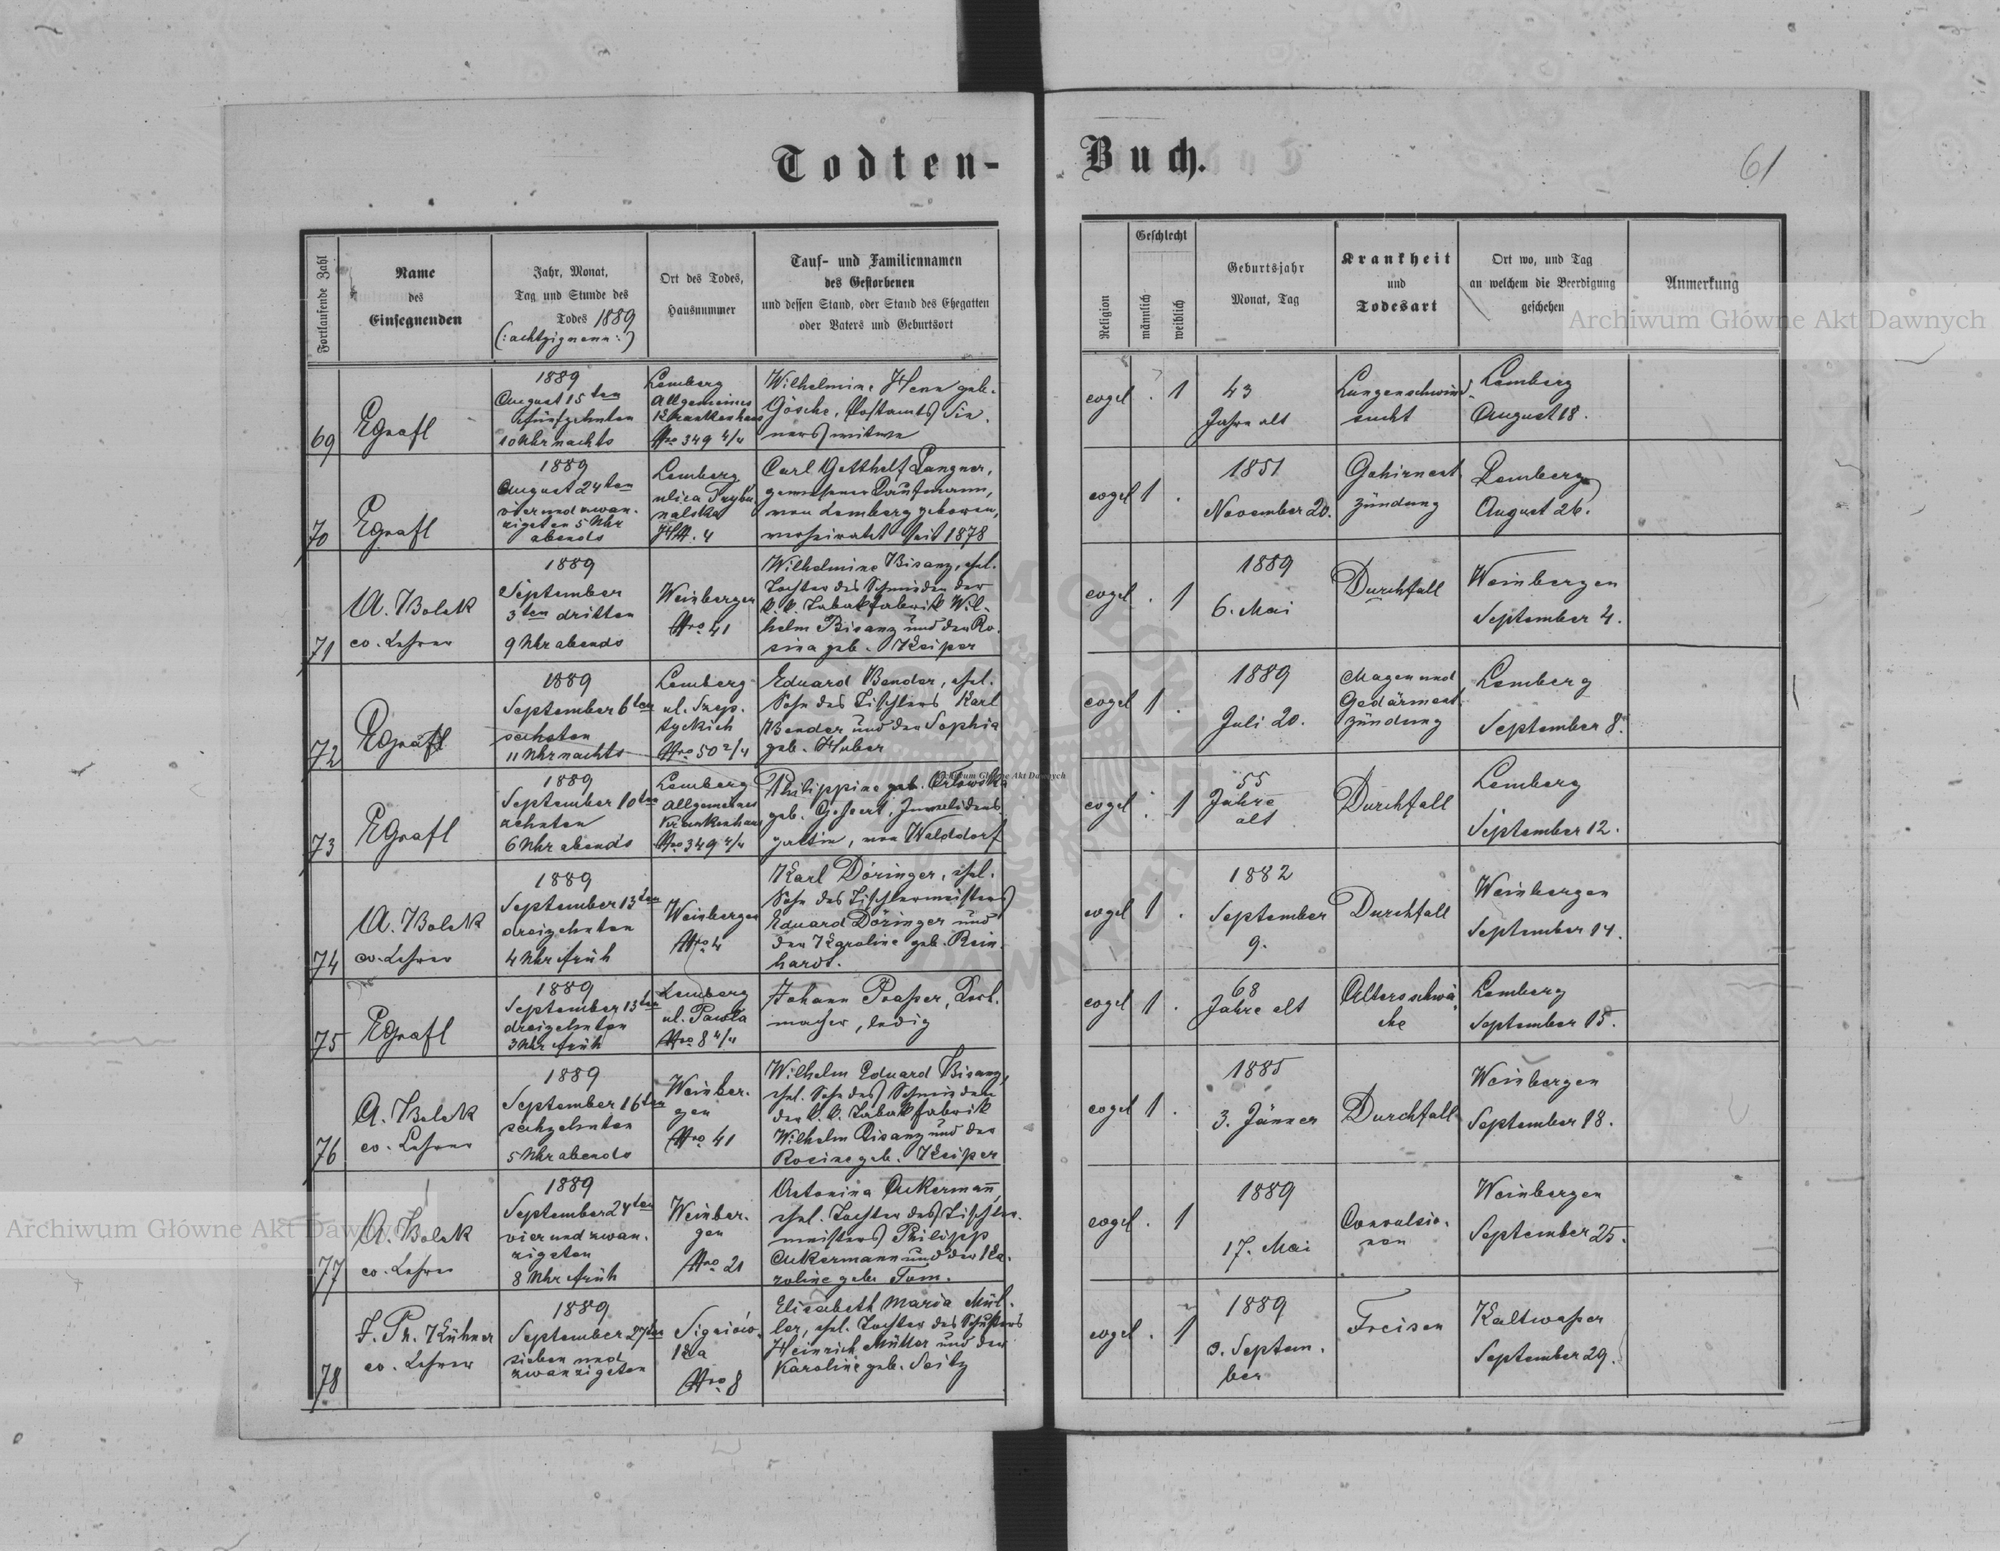 Todten-
Buch.
61
Fortlaufende Zahl
Name
des
Einsegnenden
Jahr, Monat,
Tag und Stunde des
Todes 1889
(:achtzigneun:)
Ort des Todes,
Hausnummer
Tauf- und Familiennamen
des Gestorbenen
und dessen Stand, oder Stand des Ehegatten
oder Vaters und Geburtsort
Religion
Geschlecht
männlich
weiblich
Geburtsjahr
Monat, Tag
Krankheit
und
Todesart
Ort wo, und Tag
an welchem die Beerdigung
geschehen
Anmerkung
69
EGrafl
1889
August 15ten
fünfzehnten
10 Uhr nachts
Lemberg
Allgemeines
Krankenhaus
Nro 349 4/4
Wilhelmine Henn geb.
Gösche, Postamts die-
ners witwe
evgel
. 1
43
Jahre alt
Lungenschwind-
sucht
Lemberg
August 18.
70
EGrafl
1889
August 24ten
vier und zwan-
zigsten 5 Uhr
abends
Lemberg
ulica Trybu
nalska
No. 4
Carl Gotthelf Langner,
gewesener Kaufmann,
von Lemberg geboren,
verheiratet seit 1878
evgel
1 .
1851
November 20.
Gehirnent
zündung
Lemberg
August 26.
71
A. Bolek
ev. Lehrer
1889
September
3ten dritten
9 Uhr abends
Weinbergen
Nro 41
Wilhelmine Bisanz, ehel.
Tochter des Schmiden der
k. k. Tabakfabrik Wil-
helm Bisanz und der Ro-
sina geb. Keiper
evgel
. 1
1889
6. Mai
Durchfall
Weinbergen
September 4.
72
EGrafl
1889
September 6ten
sechsten
11 Uhr nachts
Lemberg
ul. Szep-
tyckich
Nro 50 2/4
Eduard Bender, ehel.
Sohn des Tischlers Karl
Bender und der Sophia
geb. Huber
evgel
1 .
1889
Juli 20.
Magen und
Gedärment
zündung
Lemberg
September 8.
73
EGrafl
1889
September 10ten
zehnten
6 Uhr abends
Lemberg
Allgemeines
Krankenhaus
Nro 349 4/4
Philippine geb. Orlowska
geb. Invalidens
gattin, von Walddorf
evgel
. 1
55
Jahre
alt
Durchfall
Lemberg
September 12.
74
A. Bolek
ev. Lehrer
1889
September 13ten
dreizehnten
4 Uhr früh
Weinbergen
Nro 4
Karl Döringer, ehel.
Sohn des Tischlermeisters
Eduard Döringer und
der Karoline geb. Rein-
hardt.
evgel
1 .
1882
September
9.
Durchfall
Weinbergen
September 14.
75
EGrafl
1889
September 13ten
dreizehnten
3 Uhr früh
Lemberg
ul. Pawła
Nro 8 4/4
Johann Prasser,
macher, ledig
evgel
1 .
68
Jahre alt
Altersschwä-
che
Lemberg
September 15.
76
A. Bolek
ev. Lehrer
1889
September 16ten
sechzehnten
5 Uhr abends
Weinber-
gen
Nro 41
Wilhelm Eduard Bisanz,
ehel. Sohn des Schmiden
der k. k. Tabakfabrik
Wilhelm Bisanz und der
Rosine geb. Keiper
evgel
1 .
1885
3. Jänner
Durchfall
Weinbergen
September 18.
77
A. Bolek
ev. Lehrer
1889
September 24ten
vier und zwan-
zigsten
8 Uhr früh
Weinber-
gen
Nro 21
Antonina Ackermann,
ehel. Tochter des Tischler-
meisters Philipp
Ackermann und der Ka-
roline geb. Tom.
evgel
. 1
1889
17. Mai
Convulsio-
nen
Weinbergen
September 25.
78
J. Ph. Kühner
ev. Lehrer
1889
September 27ten
sieben und
zwanzigsten
Signiów-
ka
Nro 8
Elisabeth Maria Mül-
ler, ehel. Tochter des Schusters
Heinrich Müller und der
Karoline geb. Seitz
evgel
. 1
1889
3. Septem-
ber
Freisen
Kaltwasser
September 29.
Archiwum Główne Akt Dawnych
Archiwum Główne Akt Dawnych
Archiwum Główne Akt Dawnych